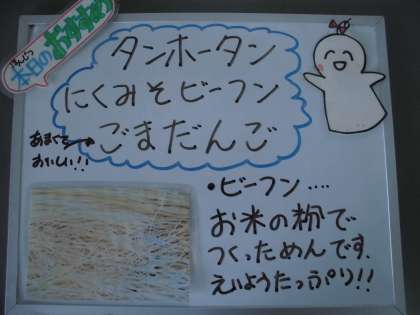 ほんじつ
本日のおすすめ
タンホータン
にくみそビーフン
ごまだんご
あまくて
おいしい!!
・ビーフン....
お米の粉で
つくっためんです.
えいようたっぷり!!